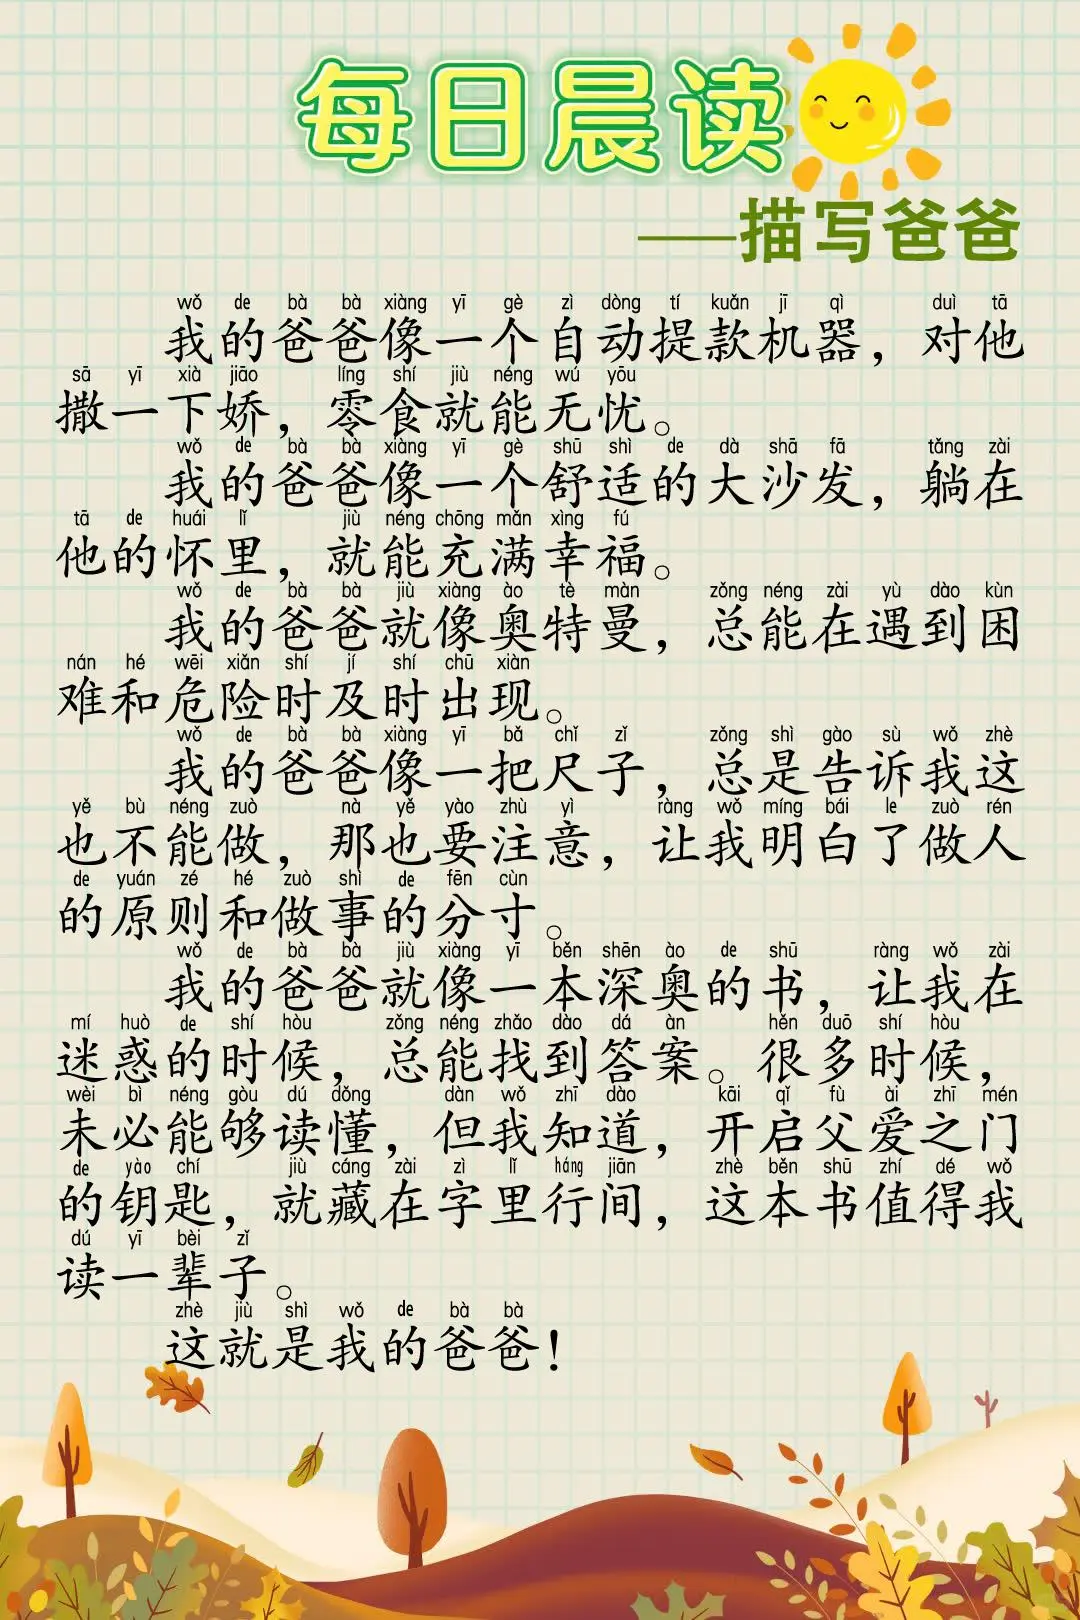 每日晨读
——描写爸爸
wǒ de bà bà xiàng yī gè zì dòng tí kuǎn jī qì duì tā
我的爸爸像一个自动提款机器，对他
sā yī xià jiāo líng shí jiù néng wú yōu
撒一下娇，零食就能无忧。
wǒ de bà bà xiàng yī gè shū shì de dà shā fā tǎng zài
我的爸爸像一个舒适的大沙发，躺在
tā de huái lǐ jiù néng chōng mǎn xìng fú
他的怀里，就能充满幸福。
wǒ de bà bà jiù xiàng ào tè màn zǒng néng zài yù dào kùn
我的爸爸就像奥特曼，总能在遇到困
nán hé wēi xiǎn shí jí shí chū xiàn
难和危险时及时出现。
wǒ de bà bà xiàng yī bǎ chǐ zǐ zǒng shì gào sù wǒ zhè
我的爸爸像一把尺子，总是告诉我这
yě bù néng zuò nà yě yào zhù yì ràng wǒ míng bái le zuò rén
也不能做，那也要注意，让我明白了做人
de yuán zé hé zuò shì de fēn cùn
的原则和做事的分寸。
wǒ de bà bà jiù xiàng yī běn shēn ào de shū ràng wǒ zài
我的爸爸就像一本深奥的书，让我在
mí huò de shí hòu zǒng néng zhǎo dào dá àn hěn duō shí hòu
迷惑的时候，总能找到答案。很多时候，
wèi bì néng gòu dú dǒng dàn wǒ zhī dào kāi qǐ fù ài zhī mén
未必能够读懂，但我知道，开启父爱之门
de yào chí jiù cáng zài zì lǐ háng jiān zhè běn shū zhí dé wǒ
的钥匙，就藏在字里行间，这本书值得我
dú yī bèi zǐ
读一辈子。
zhè jiù shì wǒ de bà bà
这就是我的爸爸！